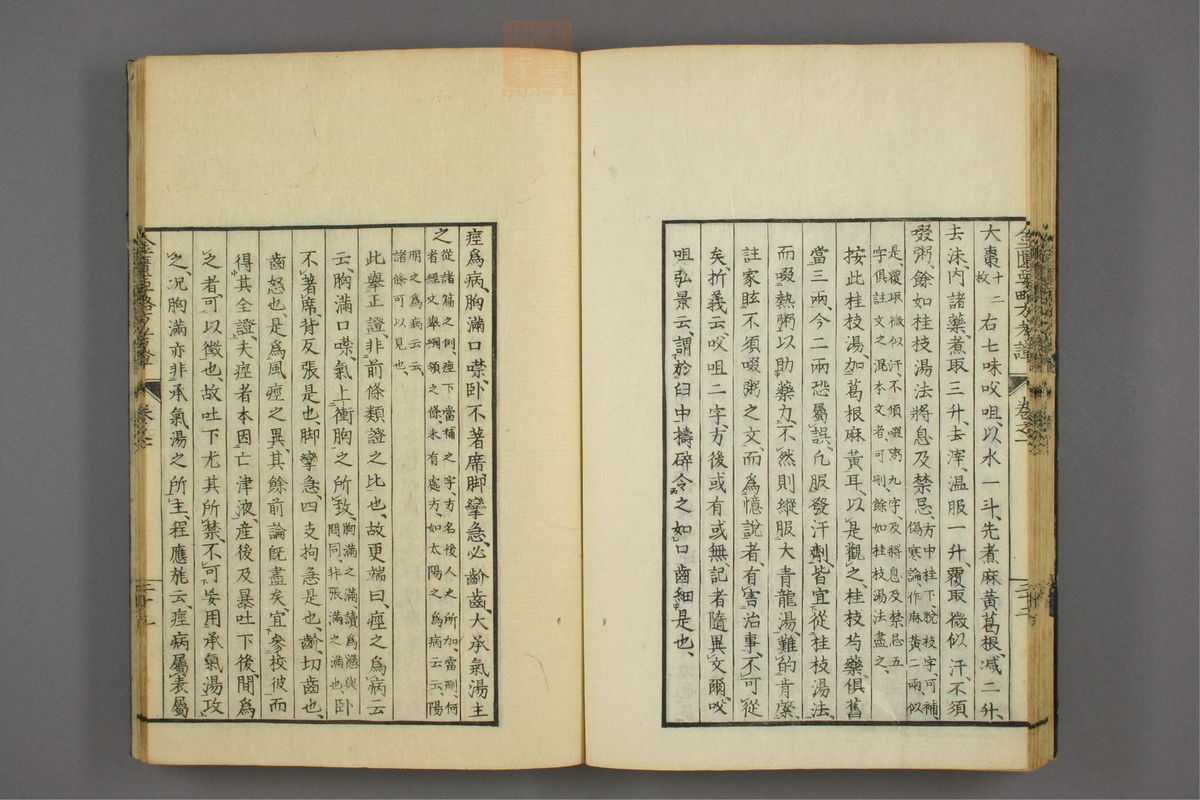 大棗十二枚右七味㕮咀、以水一斗、先煮麻黃葛根、減二升、
去沫、內諸藥、煮取三升、去滓、溫服一升、覆取微似汗、不須
啜粥、餘如桂枝湯法將息及禁忌、方中桂下脫枝字、可補、傷寒論作麻黃二兩、似
是、覆取微似汗、不須啜粥九字、及將息及禁忌五字、俱註文之混本文者、可刪、餘如桂枝湯法盡之、
按、此桂枝湯、加葛根麻黃耳、以是觀之、桂枝芍藥、俱舊
當三兩、今二兩恐屬誤、凡服發汗劑、皆宜從桂枝湯法、
而啜熱粥、以助藥力、不然則縱服大青龍湯、難的肯綮、
註家眩不須啜粥之文、而爲憶說者、有害治事、不可從
矣、折義云、㕮咀二字、方後或有或無、記者隨異文爾、㕮
咀、弘景云、謂於臼中擣碎、令之如口齒細是也、
痙爲病、胸滿口噤、臥不著席、脚攣急、必齘齒、大承氣湯主
之、從諸篇之例、痙下當補之字、方名後人之所加、當刪、何者、經文舉綱領之條、未有處方、如太陽之爲病云云、陽
明之爲病云云諸條、可以見也、
此舉正證、非前條類證之比也、故更端曰、痙之爲病云
云、胸滿口噤、氣上衝胸之所致、胸滿之滿、讀爲懣、與悶同、非張滿之滿也、臥
不著席、背反張是也、脚攣急、四支拘急是也、齘、切齒也、
齒怒也、是爲風痙之異、其餘前論旣盡矣、宜參校彼而
得其全證、夫痙者本因亡津液、產後及暴吐下後、間爲
之者、可以徵也、故吐下尤其所禁、不可妄用承氣湯攻
之、況胸滿亦非承氣湯之所主、程應旄云、痙病屬表屬
金匱要略方考證
卷之一